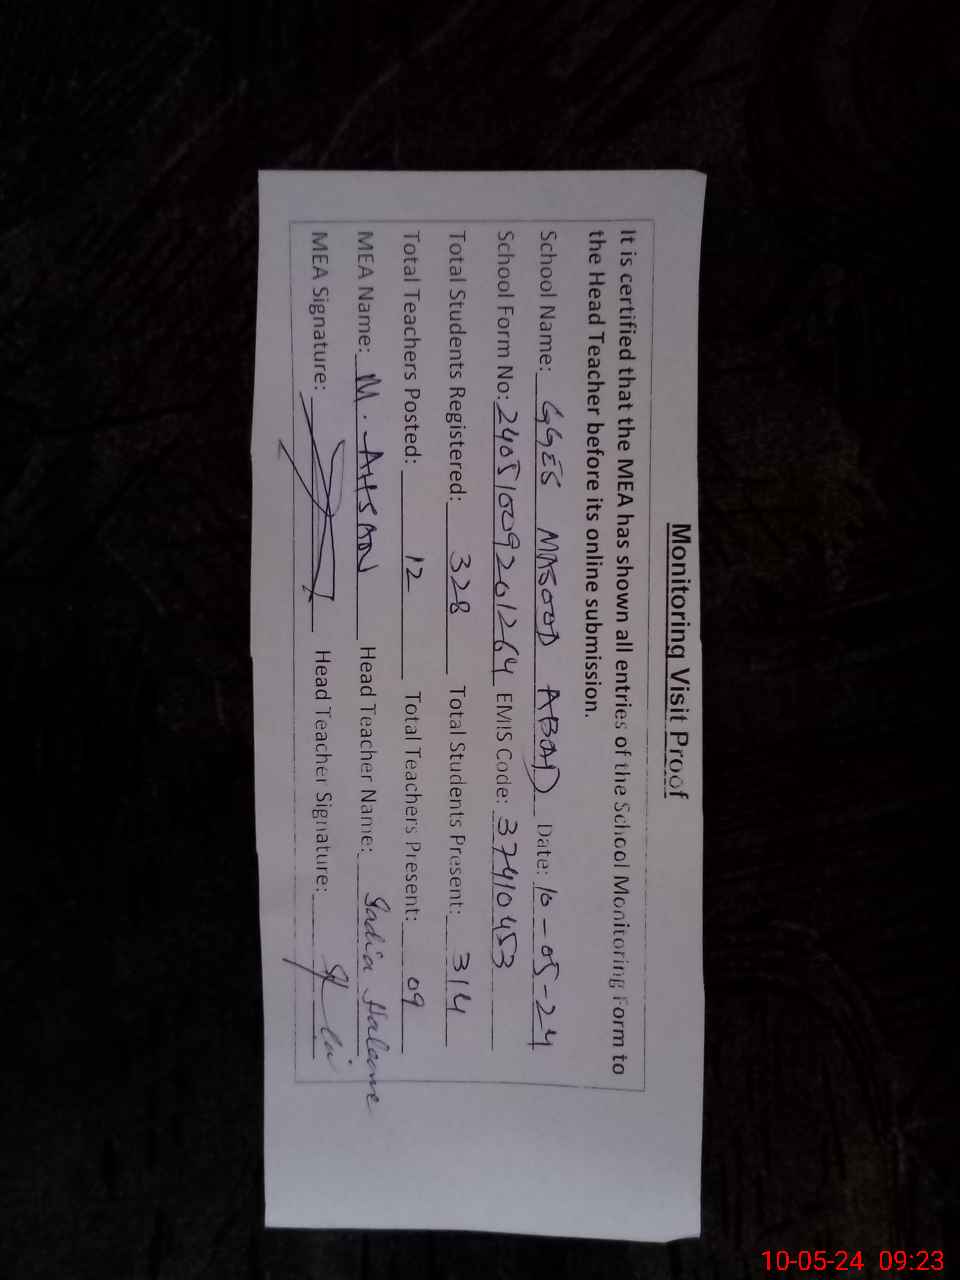 Monitoring Visit Proof
It is certified that the MEA has shown all entries of the School Monitoring Form to
the Head Teacher before its online submission.
School Name: GGES MASOOD ABAD Date: 10-05-24
School Form No: 24051009201264 EMIS Code: 37410453
Total Students Registered: 328 Total Students Present: 314
Total Teachers Posted: 12 Total Teachers Present: 09
MEA Name: M. AHSAN Head Teacher Name: Sadia Haleme
MEA Signature: Head Teacher Signature:
10-05-24 09:23